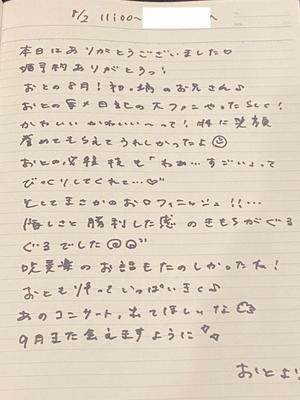 8/2 11:00〜
本日はありがとうございました♡
ありがとうっ!
おとの8月!初のお兄さん♪
おとの写メ日記の大ファンやったらしく!
かわいいかわいい〜って!特に笑顔
誉めてもらえてうれしかったよ☺
おとの必殺技も「わぁ…すごい」って
びっくりしてくれて…♡"
そしてまさかのお口フィニッシュ!!…
悔しさと勝利した感のきもちがぐる
ぐるでした@@"
吹奏楽のお話もたのしかったね!
おともゆっていっぱいきく♪
あのコンサート、出てほしいな
9月また会えますように✧˖
おとより